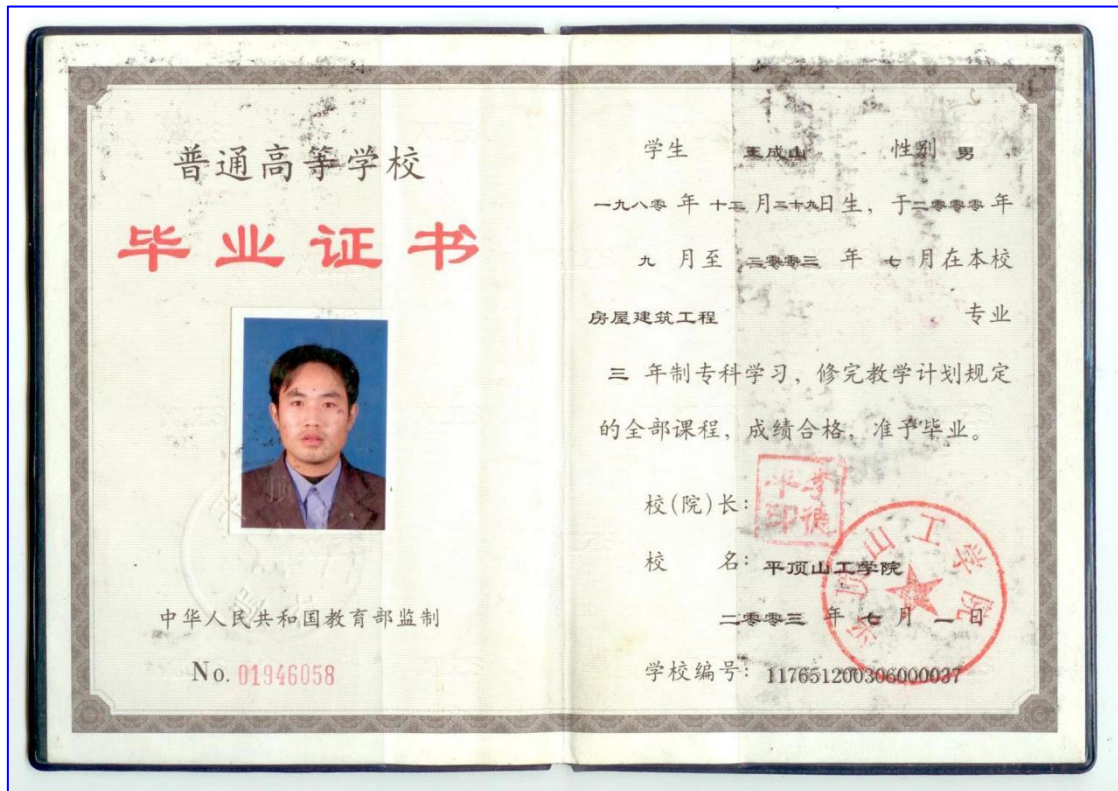 普通高等学校
毕业证书
中华人民共和国教育部监制
No. 01946058
学生 王成山 性别 男，
一九八零 年 十二 月二十九日生，于二零零零年
九 月至 二零零三 年 七 月在本校
房屋建筑工程 专业
三 年制专科学习，修完教学计划规定
的全部课程，成绩合格，准予毕业。
校(院)长：
校 名：平顶山工学院
二零零三 年 七 月 一 日
学校编号：117651200306000037
平顶山工学院